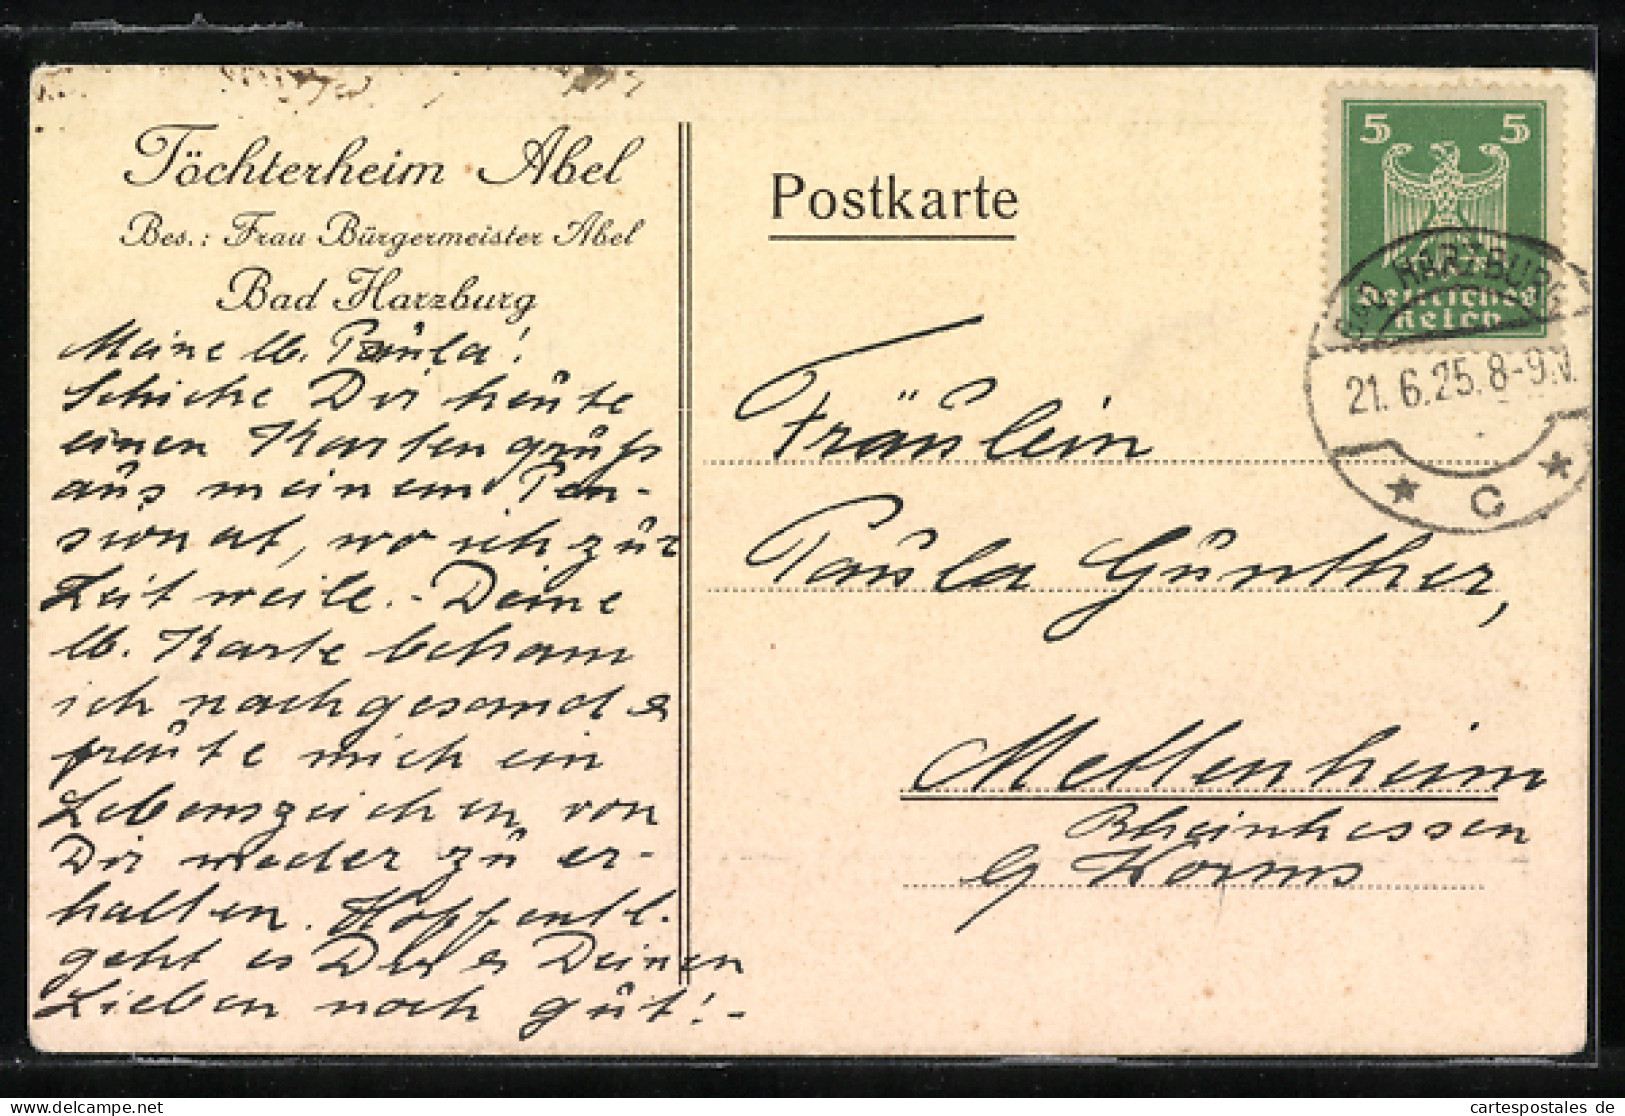 Töchterheim Abel
Bes.: Frau Bürgermeister Abel
Bad Harzburg
Meine lb. Paula!
Schicke Dir heute
einen Kartengruß
aus meinem Pen-
sionat, wo ich zur
Zeit weile. - Deine
lb. Karte bekam
ich nachgesandt &
freute mich ein
Lebenszeichen von
Dir wieder zu er-
halten. Hoffentl.
geht es Dir & Deinen
Lieben noch gut! -
Postkarte
Fräulein
Paula Günther,
Mettenheim
Rheinhessen
b/ Worms
5 5
Deutsches
Reich
BAD HARZBURG
21.6.25.8-9.V.
* C *
cartespostales de